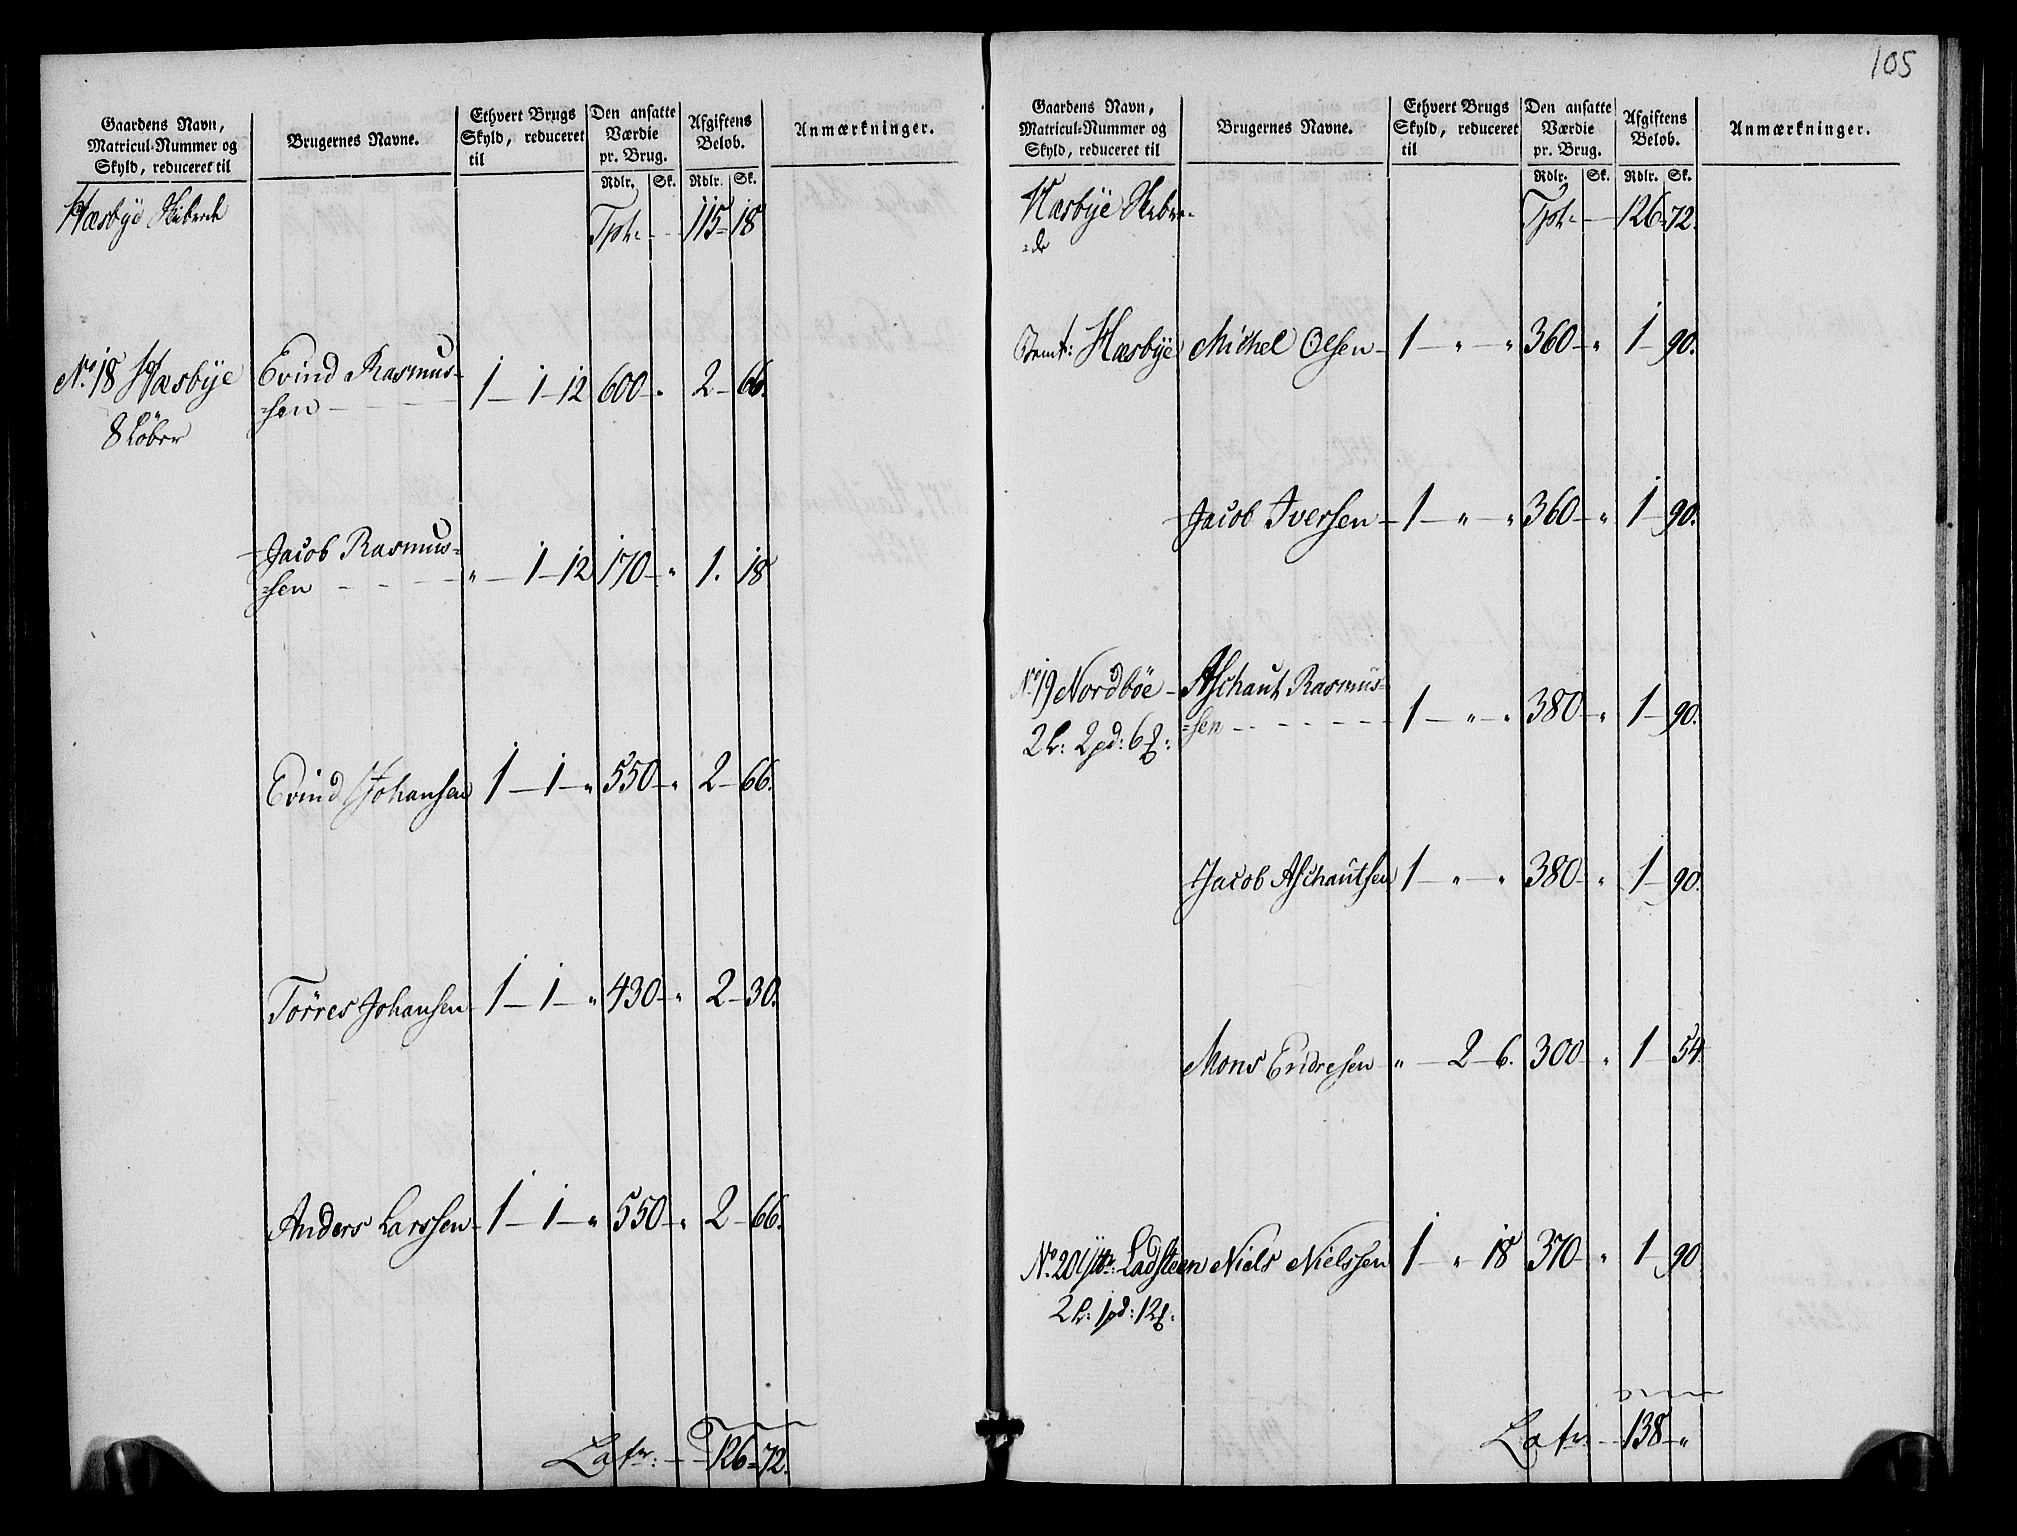 105
Gaardens Navn, Matricul-Nummer og Skyld, reduceret til
Brugernes Navne.
Ethvert Brugs Skyld, reduceret til
Den ansatte Værdie pr. Brug.
Afgiftens Beløb.
Anmærkninger.
Rdlr. Sk. Rdlr. Sk.
Hæsbye Skibrede Tpt: — 115 = 18
No. 18 Hæsbye Evind Rasmus-
=sen — 1 — 1 — 12 600 — " 2 — 66.
8 Løber
Jacob Rasmus=
=sen — " — 1 — 12 170 — " 1. 18
Evind Johansen 1 — 1 — " 550 — " 2 — 66.
Törres Johansen 1 — 1 — " 430 — " 2 — 30.
Anders Larssen 1 — 1 — " 550 — " 2 — 66.
Latr: — 126 = 72.
Gaardens Navn, Matricul-Nummer og Skyld, reduceret til
Brugernes Navne.
Ethvert Brugs Skyld, reduceret til
Den ansatte Værdie pr. Brug.
Afgiftens Beløb.
Anmærkninger.
Rdlr. Sk. Rdlr. Sk.
Hæsbye Skibre=
=de Tpt: — 126 = 72.
Hæsbye Michel Olsen — 1 — " — " 360 — " 1 — 90.
Jacob Iversen — 1 — " — " 360 — " 1 — 90.
No. 19 Nordbøe — Aschaut Rasmus=
=sen — 1 — " — " 380 — " 1 — 90.
2 L: 2 pd: 6 ℔:
Jacob Aschautsen 1 — " — " 380 — " 1 — 90.
Mons Endresen — " — 2 — 6. 300 — " 1 — 54.
No. 20 Yttr: Ladsteen Niels Nielssen 1 — " 18 370 — " 1 — 90
2 L: 1 pd: 12 ℔:
Latr: — 138 — "